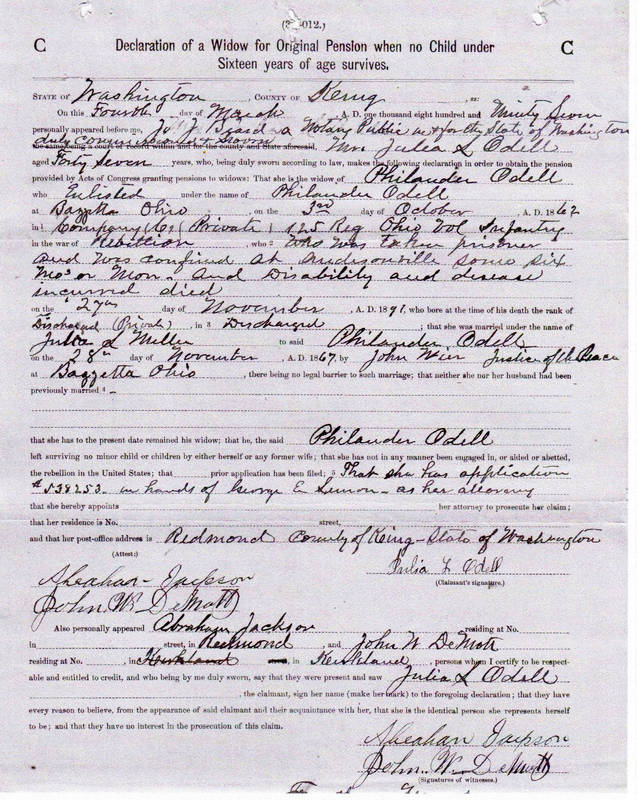 (3-012.)
C Declaration of a Widow for Original Pension when no Child under C
Sixteen years of age survives.
STATE OF Washington, COUNTY OF King, ss:
On this Fourth day of March, A. D. one thousand eight hundred and Ninty Seven
personally appeared before me, a Notary Public in & for the State of Washington
duly Commissioned & Sworn
the same being a court of record within and for the county and State aforesaid, Mrs Julia L Odell
aged Forty Seven years, who, being duly sworn according to law, makes the following declaration in order to obtain the pension
provided by Acts of Congress granting pensions to widows: That she is the widow of Philander Odell
who Enlisted under the name of Philander Odell
at Bazetta Ohio, on the 3rd day of October, A. D. 1862
in Company (C) (Private) 125 Reg Ohio Vol Infantry
in the war of Rebellion, who Who was taken prisoner
and was confined at Andisonville some six
Mos or More. and Disability and disease
incurred died
on the 27th day of November, A. D. 1891, who bore at the time of his death the rank of
Discharged (Private), in 3 Discharged; that she was married under the name of
Julia L Miller to said Philander Odell
on the 28th day of November, A. D. 1867, by John Weir Justice of the Peace
at Bazzetta Ohio, there being no legal barrier to such marriage; that neither she nor her husband had been
previously married 4 –
that she has to the present date remained his widow; that he, the said Philander Odell
left surviving no minor child or children by either herself or any former wife; that she has not in any manner been engaged in, or aided or abetted,
the rebellion in the United States; that prior application has been filed; 5 That she has application
# 538253. in hands of George E Lemon – as her attorney
that she hereby appoints her attorney to prosecute her claim;
that her residence is No. street,
and that her post-office address is Redmond County of King – State of Washington
(Attest:)
Julia L Odell
(Claimant's signature.)
Abraham Jackson
John W. DeMott
Also personally appeared Abraham Jackson residing at No.
in street, in Redmond, and John W DeMott
residing at No. , in Kirkland and, in Kirkland, persons whom I certify to be respect-
able and entitled to credit, and who being by me duly sworn, say that they were present and saw Julia L Odell
, the claimant, sign her name (make her mark) to the foregoing declaration; that they have
every reason to believe, from the appearance of said claimant and their acquaintance with her, that she is the identical person she represents herself
to be; and that they have no interest in the prosecution of this claim.
Abraham Jackson
John W. DeMott
(Signatures of witnesses.)